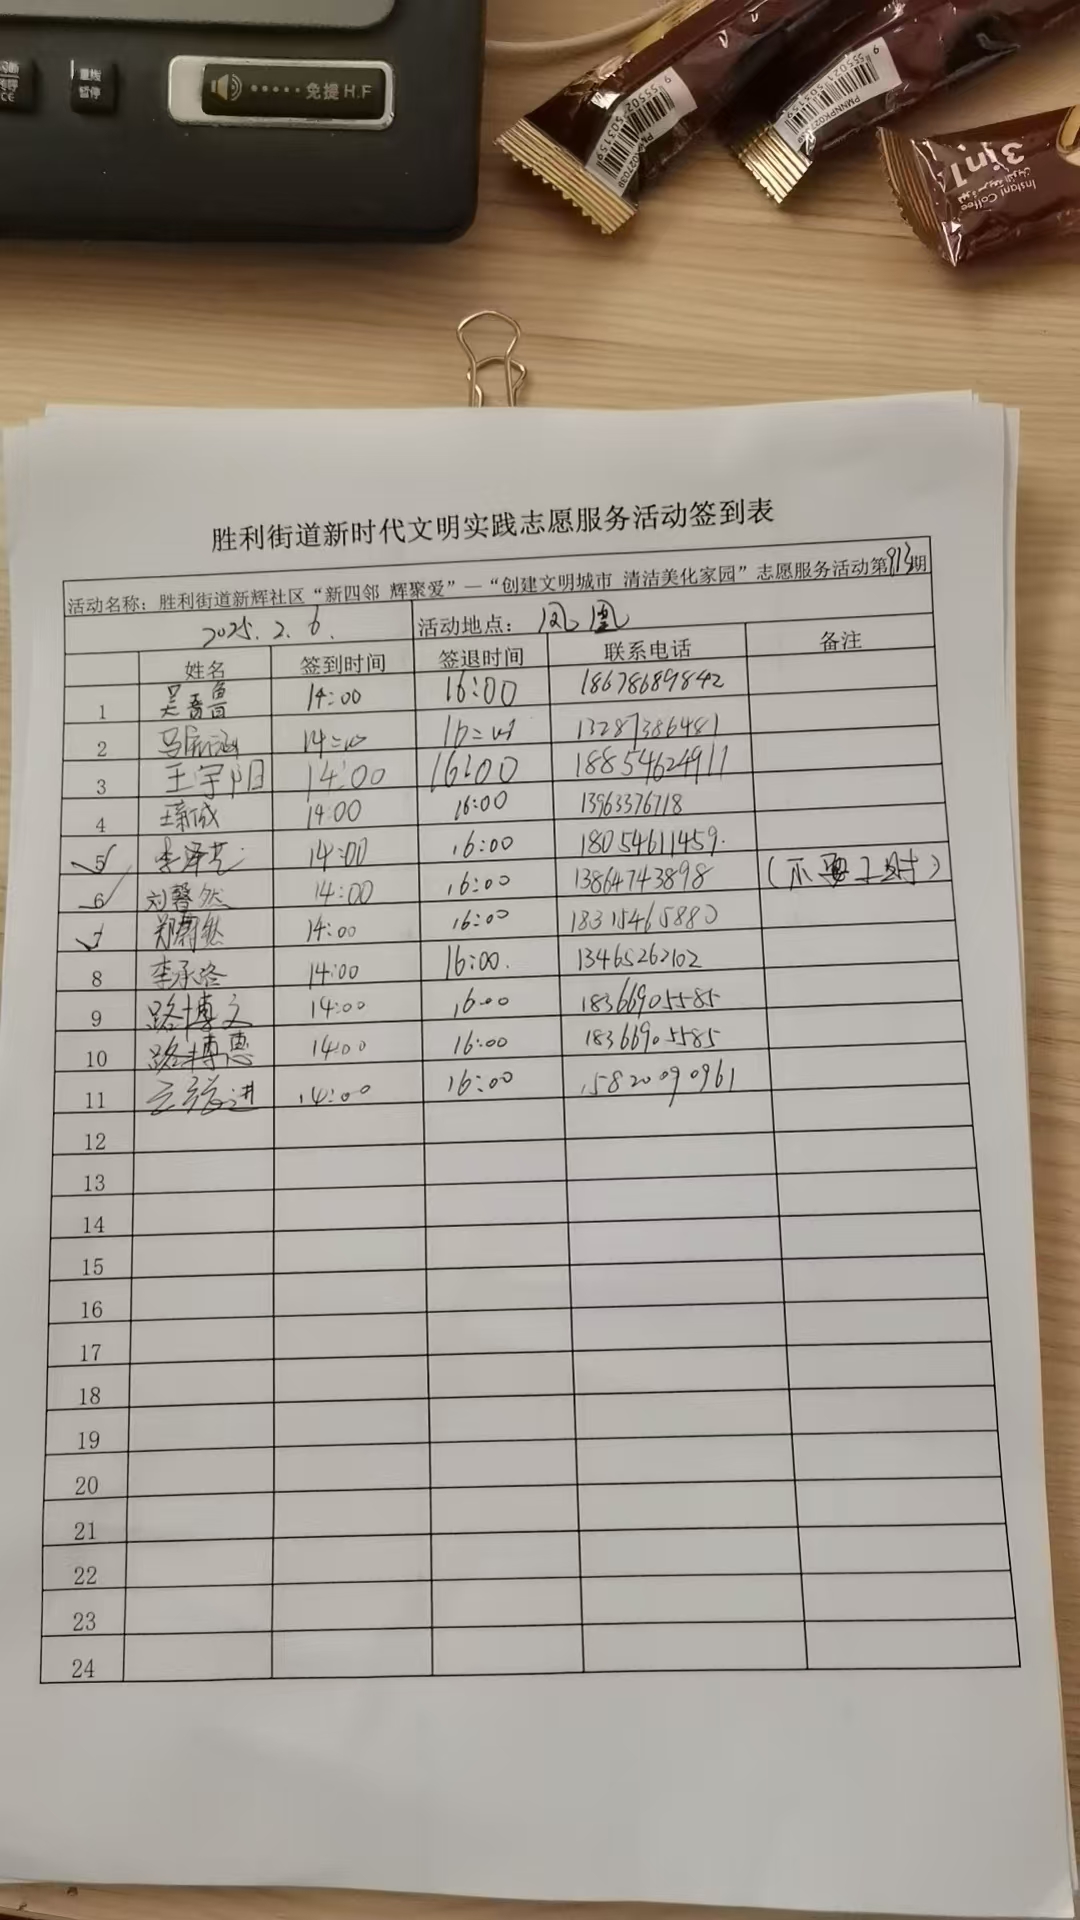 重拨
暂停
免提 H.F
3in1
Instant Coffee
胜利街道新时代文明实践志愿服务活动签到表
活动名称：胜利街道新辉社区“新四邻 辉聚爱”—“创建文明城市 清洁美化家园”志愿服务活动第913期
2025.2.6. 活动地点：凤凰
姓名 签到时间 签退时间 联系电话 备注
1 14:00 16:00 18678689842
2 13287386481
3 王宇阳 14:00 16:00 18854624911
4 14:00 16:00 13963376718
5 李泽艺 14:00 16:00 18054611459.
6 刘馨然 14:00 16:00 13864743898 (不要工时)
7 14:00 16:00 18315465880
8 李承洛 14:00 16:00. 13465262102
9 路博文 14:00 16:00 18366905585
10 路博惠 14:00 16:00 18366905585
11 14:00 16:00 15820090961
12
13
14
15
16
17
18
19
20
21
22
23
24